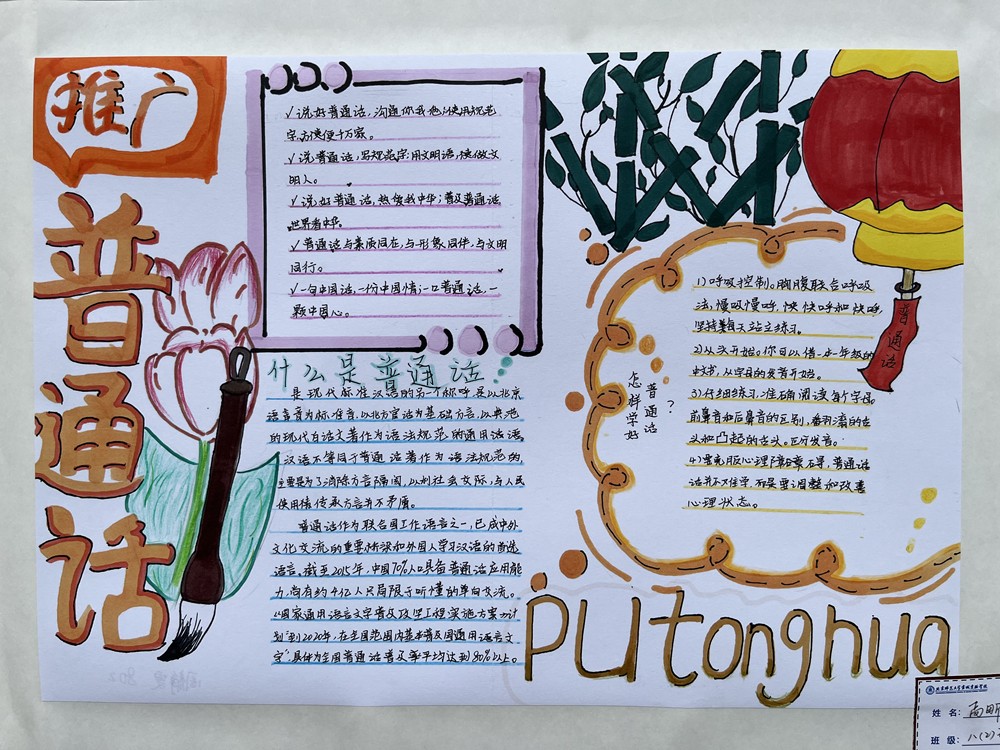 推广
普通话
√说好普通话,沟通你我他;使用规范
字,方便千万家。
√说普通话,写规范字;用文明语,快做文
明人。
√说好普通话,热爱我中华;普及普通话,
世界看中华。
√普通话与素质同在,与形象同伴,与文明
同行。
√一句中国话,一份中国情;一口普通话,一
颗中国心。
什么是普通话?
是现代标准汉语的另一个称呼,是以北京
语音为标准音,以北方官话为基础方言,以典范
的现代白话文著作为语法规范的通用语。
汉语不等同于普通话著作为语法规范的,
主要是为了消除方言隔阂,以利社会交际,与人民
使用传承方言并不矛盾。
普通话作为联合国工作语言之一,已成中外
文化交流的重要桥梁和外国人学习汉语的首选
语言。截至2015年,中国70%人口具备普通话应用能
力,尚有约4亿人只局限于听懂的单向交流。
《国家通用语言文字普及攻坚工程实施方案》计
划"到2020年,在全国范围内基本普及国通用语言文
字",具体为全国普通话普及率平均达到80%以上。
普通话
怎样学好
?
1)呼吸控制。胸腹联合呼吸
法,慢吸慢呼,快快呼和快呼,
坚持每天站立练习。
2)从头开始。你可以借一本一年级的
中文书,从字母的发音开始。
3)仔细练习,准确阅读每个字母
前鼻音和后鼻音的区别,卷平滑的舌
头和凸起的舌头。区分发音。
4)要克服心理障碍,普通话
话并不难学,而是要调整和改善
心理状态。
普通话
PUtonghua
姓名:
班级:八(2)